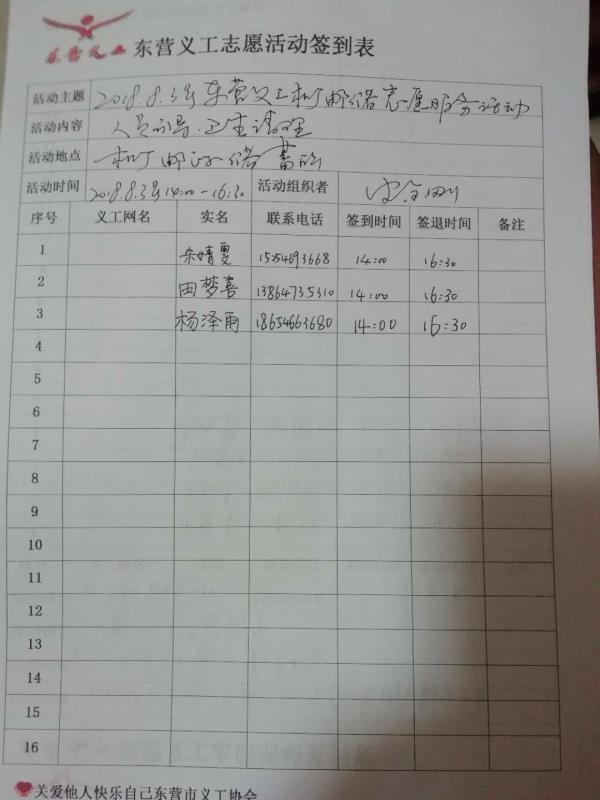 东营义工 东营义工志愿活动签到表
活动主题 2018.8.3号东营义工机厂邮储志愿服务活动
活动内容 人员引导.卫生清理
活动地点 机厂邮政储蓄所
活动时间 2018.8.3号14:00-16:30 活动组织者
序号 义工网名 实名 联系电话 签到时间 签退时间 备注
1 朱婧 1554693668 14:00 16:30
2 田梦喜 13864735310 14:00 16:30
3 杨泽雨 18654663680 14:00 16:30
4
5
6
7
8
9
10
11
12
13
14
15
16
关爱他人快乐自己东营市义工协会